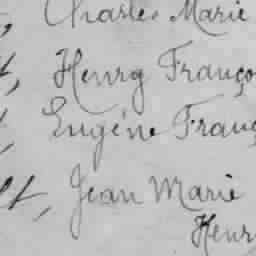 Charles Marie
t, Henry Franço
Eugène Franç
lt, Jean Marie
Henr